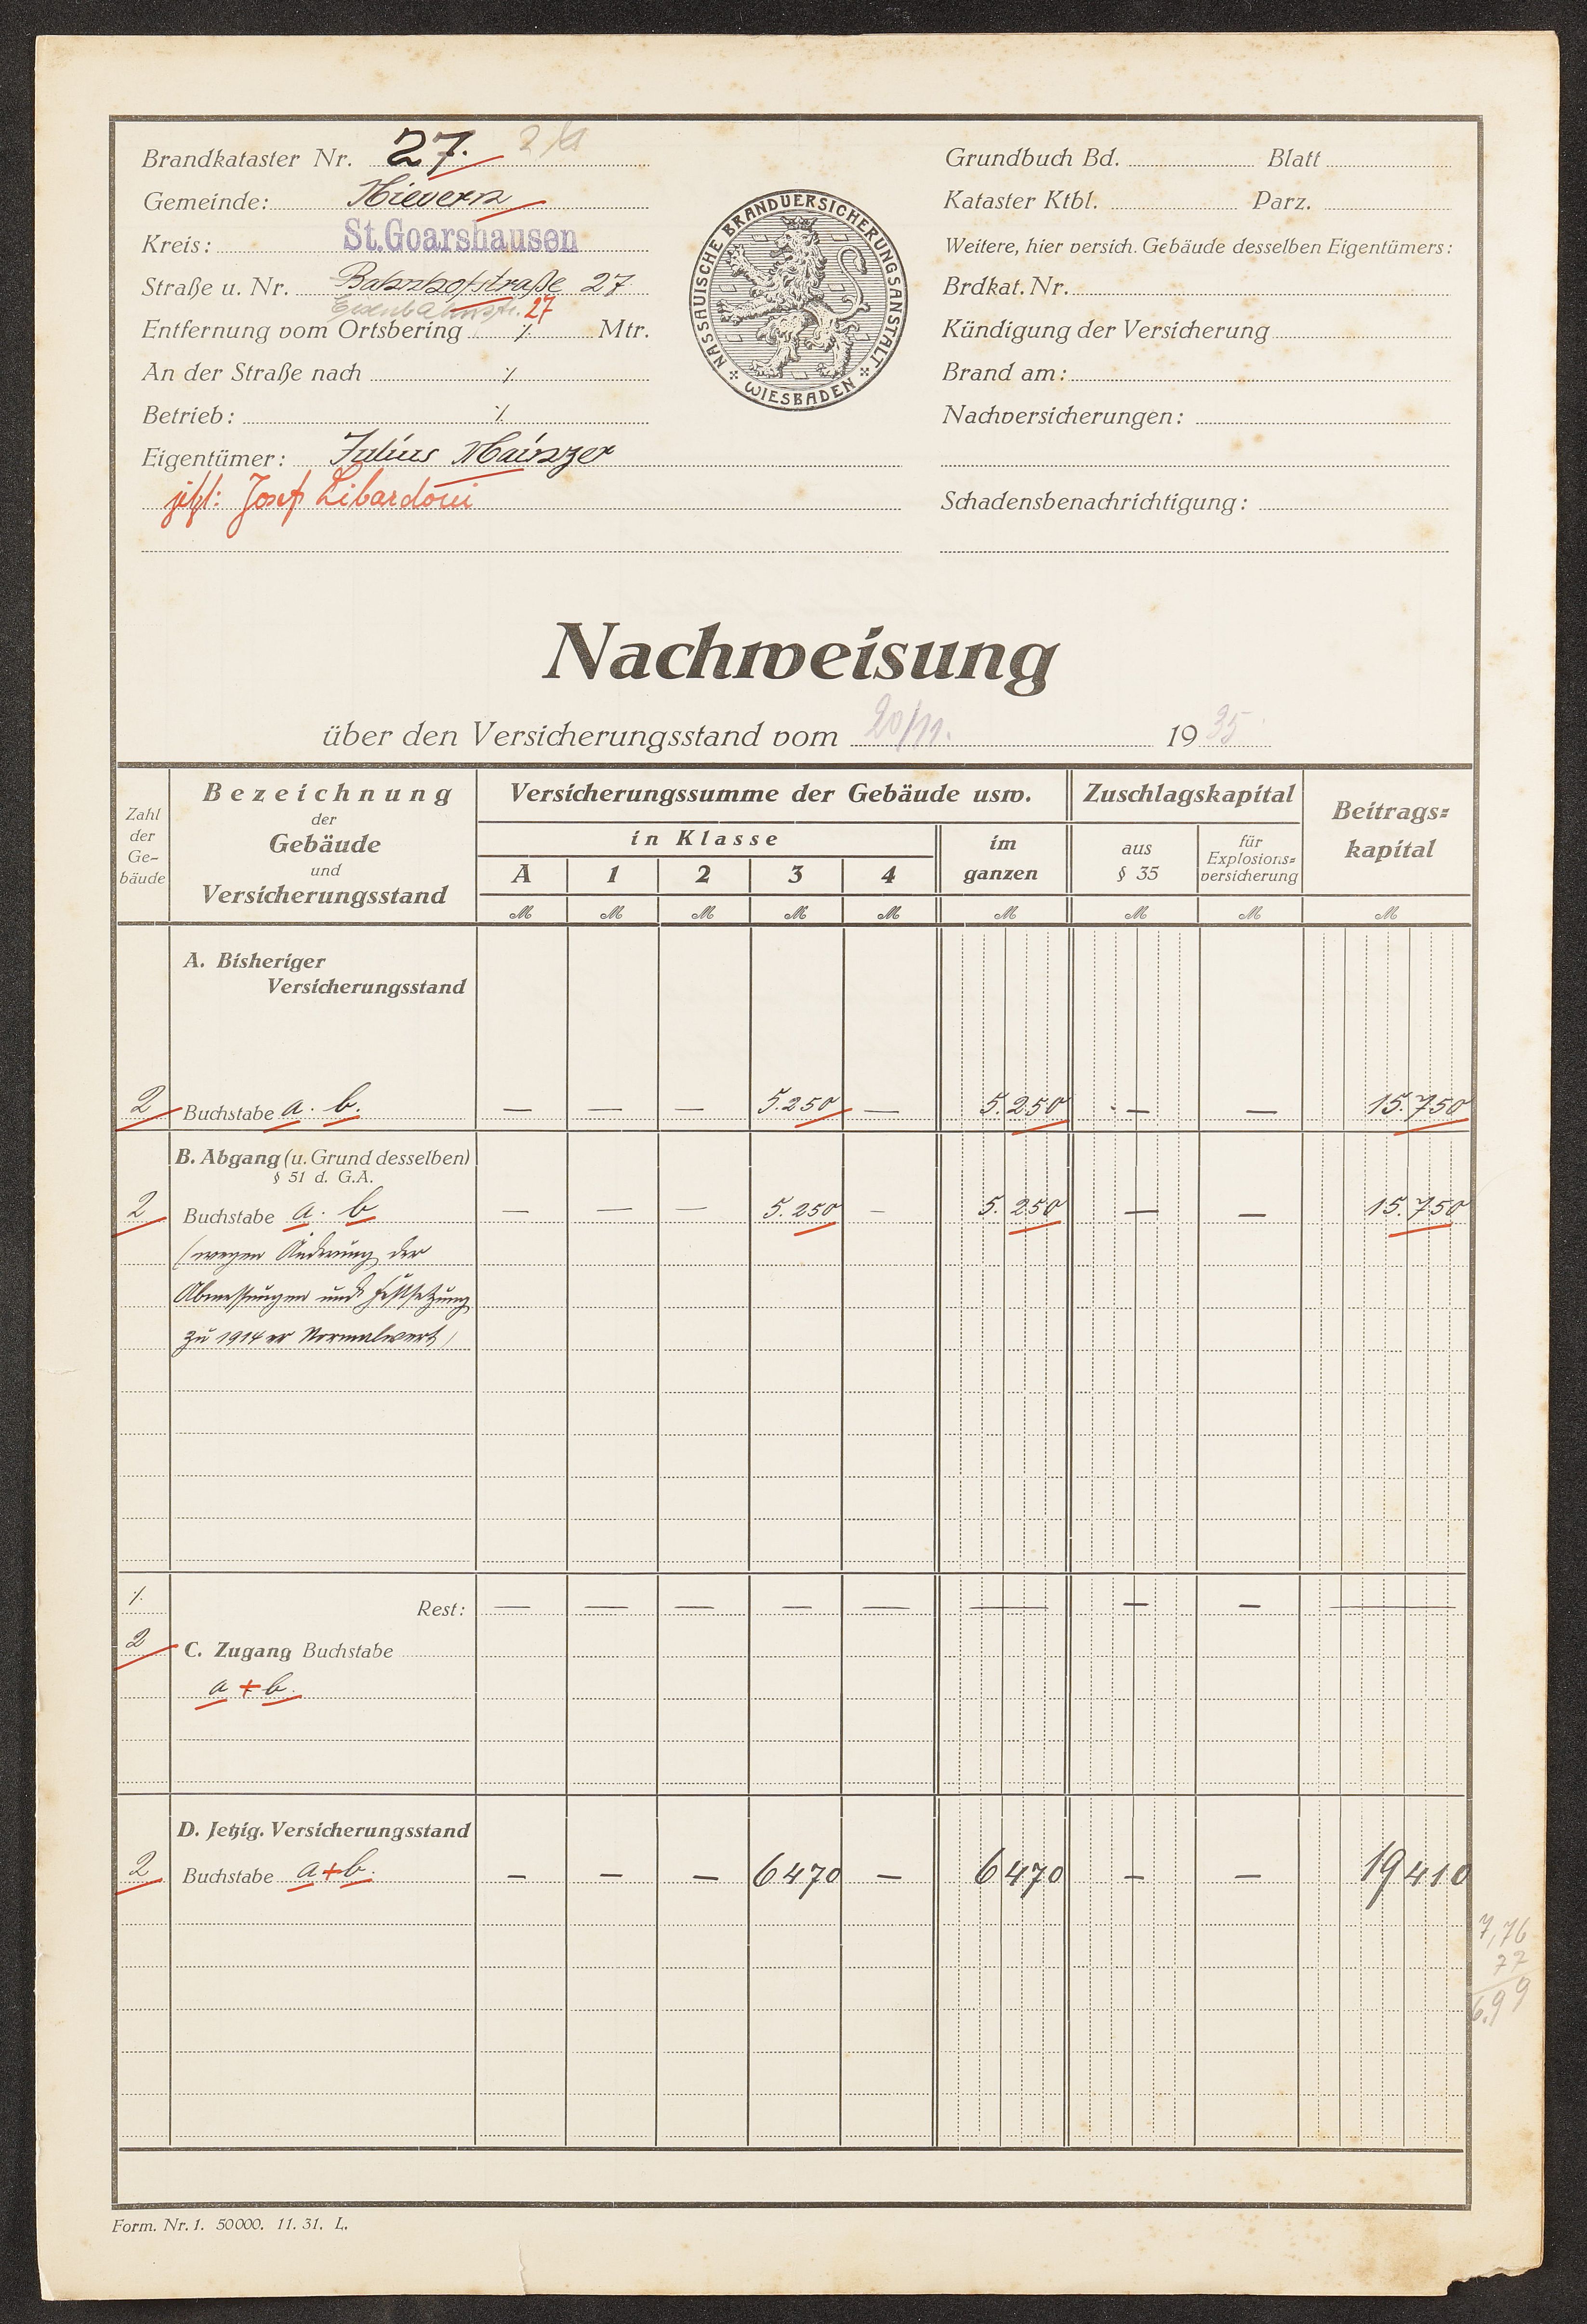 Brandkataster Nr. 27.
Gemeinde: Nievern
Kreis: St.Goarshausen
Straße u. Nr. Bahnhofstraße 27
Eisenbahnstr. 27
Entfernung vom Ortsbering ./. Mtr.
An der Straße nach ./.
Betrieb: ./.
Eigentümer: Julius Mainzer
jetzt: Josef Libardoni
NASSAUISCHE BRANDVERSICHERUNGSANSTALT
WIESBADEN
Grundbuch Bd. Blatt
Kataster Ktbl. Parz.
Weitere, hier versich. Gebäude desselben Eigentümers:
Brdkat. Nr.
Kündigung der Versicherung
Brand am:
Nachversicherungen:
Schadensbenachrichtigung:
Nachweisung
über den Versicherungsstand vom 20/11. 19 35
Zahl der Ge-bäude
Bezeichnung der Gebäude und Versicherungsstand
Versicherungssumme der Gebäude usw.
in Klasse
A 1 2 3 4
im ganzen
Zuschlagskapital
aus § 35
für Explosions=versicherung
Beitrags=kapital
M M M M M M M M M
A. Bisheriger
Versicherungsstand
2 Buchstabe a. b. — — — 5.250 — 5.250 — — 15.750
B. Abgang (u. Grund desselben)
§ 51 d. G.A.
2 Buchstabe a. b — — — 5.250 — 5.250 — — 15.750
(wegen Änderung der
Abmessungen und Festsetzung
zu 1914er Normalwert)
./. Rest: — — — — — — — — —
2 C. Zugang Buchstabe
a + b.
D. Jetzig. Versicherungsstand
2 Buchstabe a+b. — — — 6470 — 6470 — — 19410
7,76
77
6.99
Form. Nr. 1. 50000. 11. 31. L.